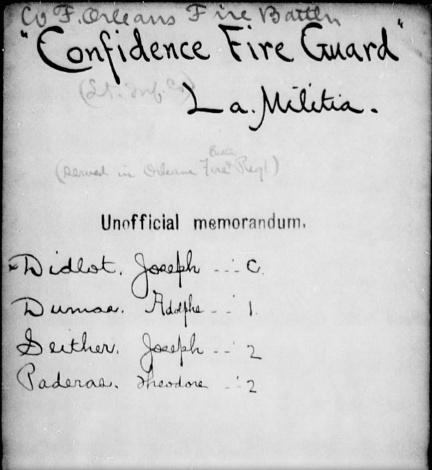 Co F. Orleans Fire Battln
"Confidence Fire Guard"
(Lt. Inf. Co)
La. Militia.
Batt
(served in Orleans Fire Regt)
Unofficial memorandum.
Didlot, Joseph --: C.
Dumas, Adolphe --: 1.
Seither, Joseph --: 2
Paderas, Theodore --: 2